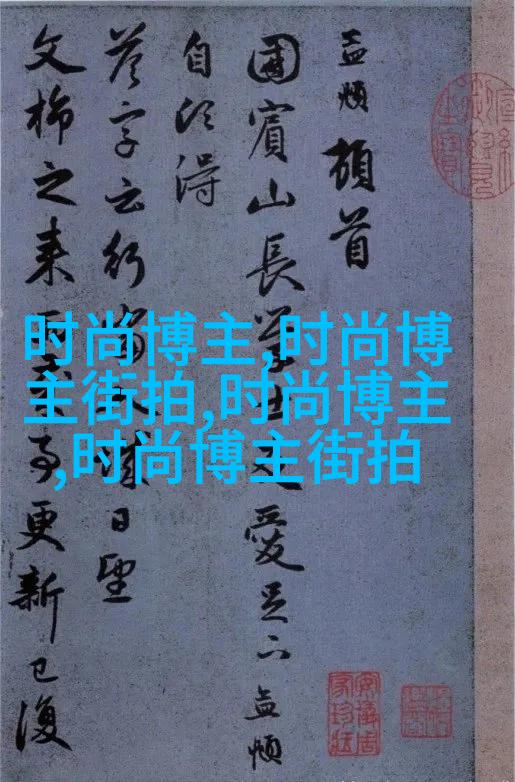 时尚博主,时尚博
主街拍,时尚博主
,时尚博主街拍
孟頫頓首
國賓山長學士友愛足下孟頫
自頃得
答字云行當日望
文之来更新已復